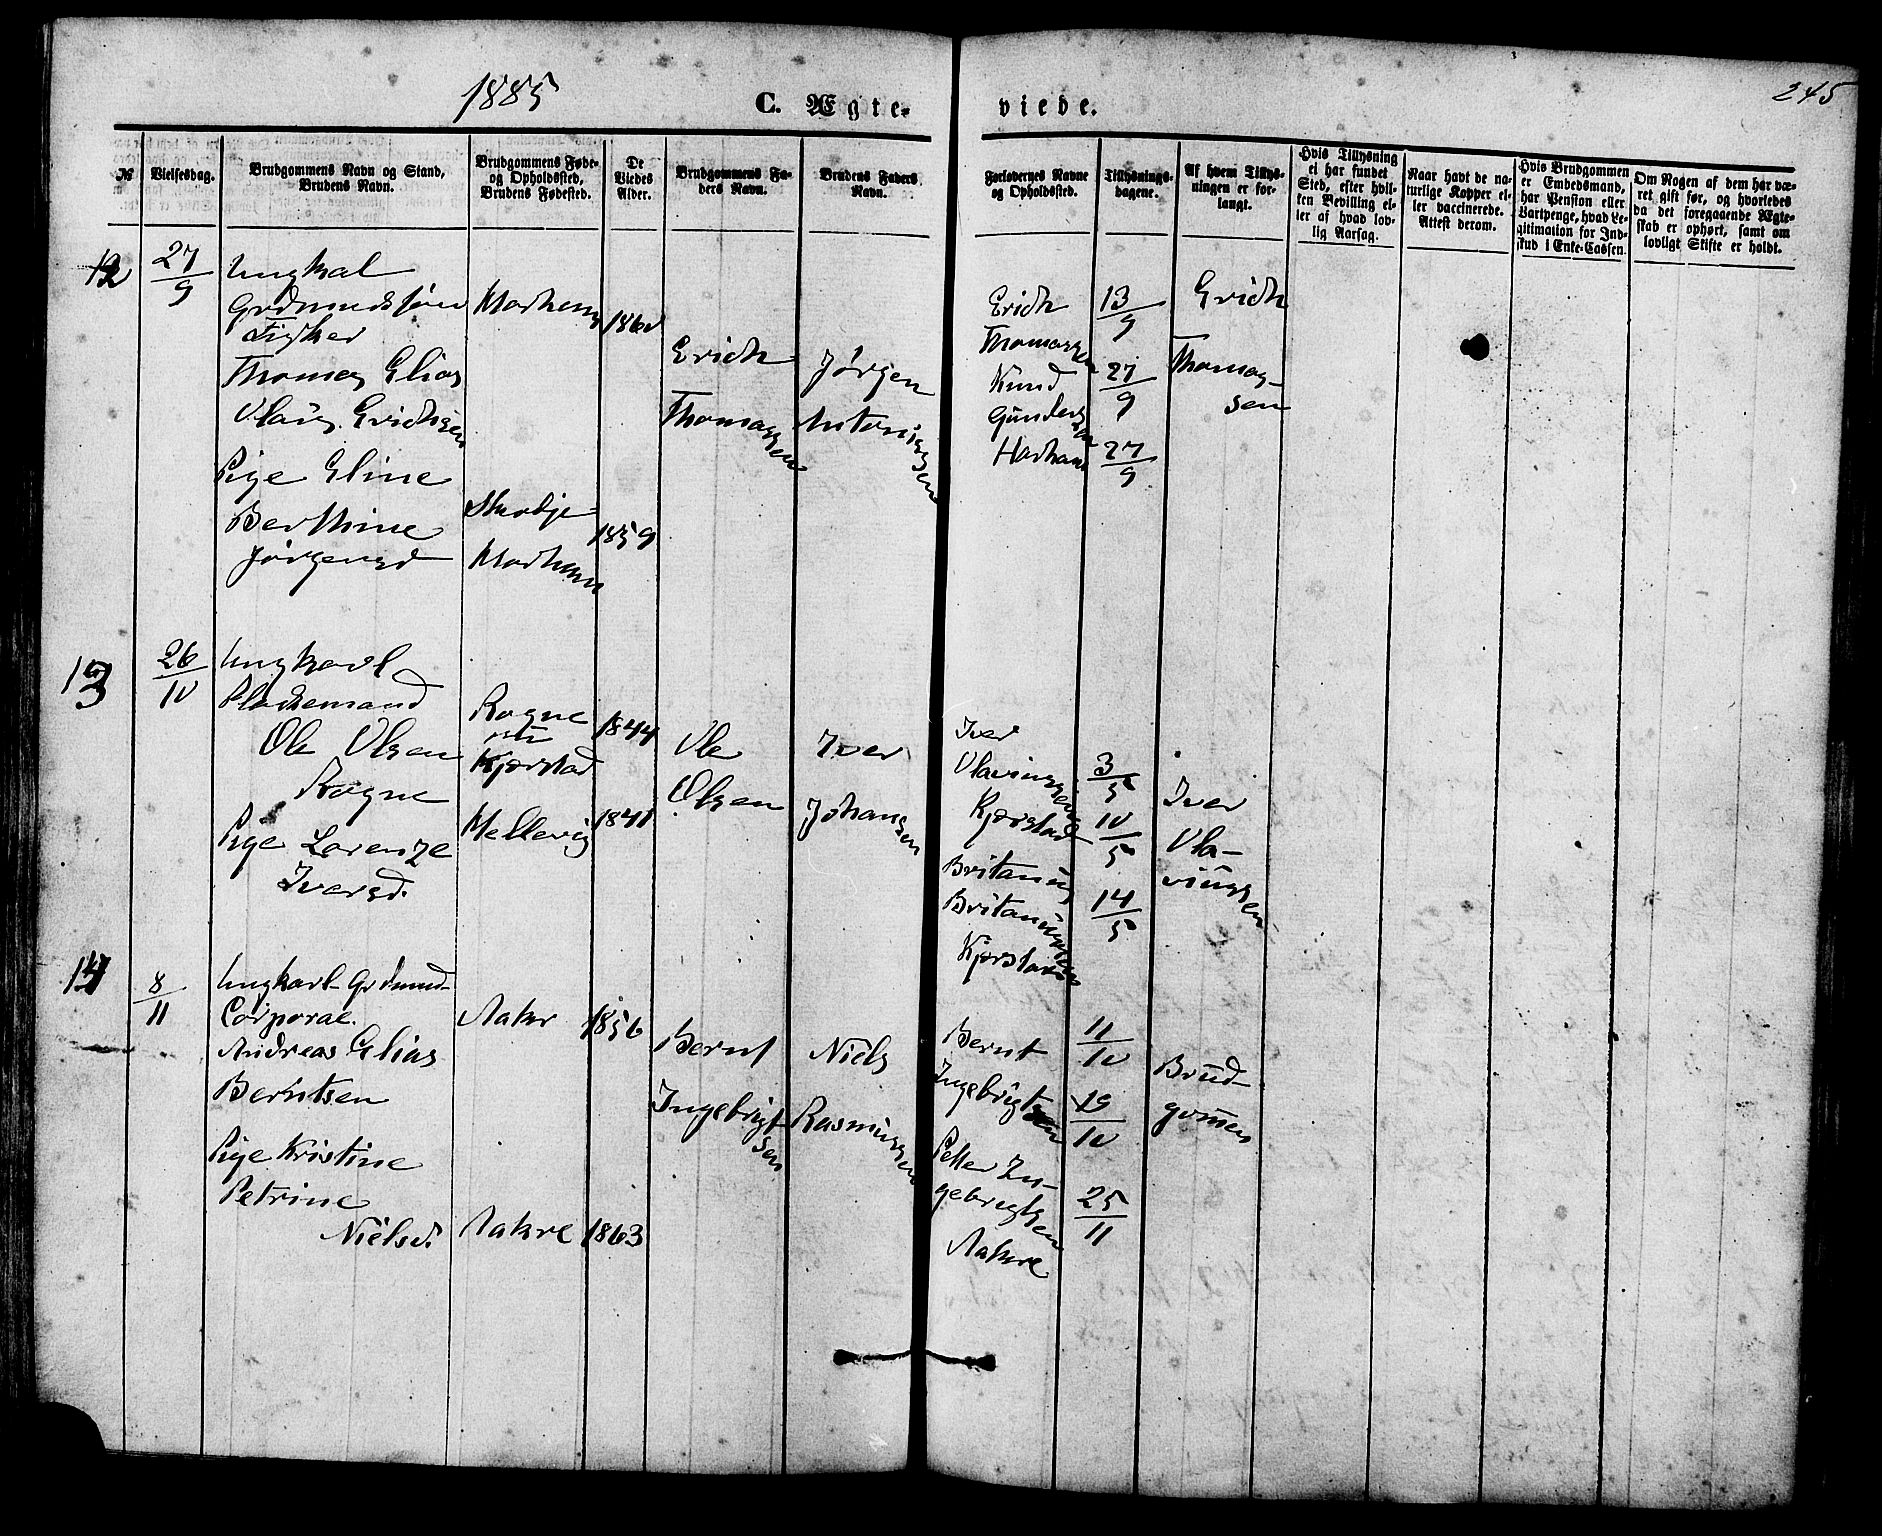 1885
C. Ægte-
viede.
245
№
Vielsesdag.
Brudgommens Navn og Stand,
Brudens Navn.
Brudgommens Føde-
og Opholdssted,
Brudens Fødested.
De
Viedes
Alder.
Brudgommens Fa-
ders Navn.
Brudens Faders
Navn.
Forlovernes Navne
og Opholdssted.
Tillysnings-
dagene.
Af hvem Tillys-
ningen er for-
langt.
Hvis Tillysning
ei har fundet
Sted, efter hvil-
ken Bevilling el-
ler af hvad lov-
lig Aarsag.
Naar havt de na-
turlige Kopper el-
ler vaccinerede.
Attest derom.
Hvis Brudgommen
er Embedsmand,
har Pension eller
Vartpenge, hvad Le-
gitimation for Ind-
skud i Enke-Cassen.
Om Nogen af dem har væ-
ret gift før, og hvorledes
da det foregaaende Ægte-
skab er ophørt, samt om
lovligt Skifte er holdt.
12
27
9
Ungkal
Grdmandsføn
Fisker
Thomas Elias
Olaus Erichsen
Pige Eline
Berthine
Jørgensd
1859
Erich
Thomassen
Jørgen
Antoniussen
Erich
Thomassen
Knud
Gundersen
13
9
27
9
27
9
Erich
Thomas-
sen
13
26
10
Ungkarl
Pladsemand
Ole Olsen
Rogne
Pige Lorenze
Iversd.
Rogne
Kjærstad
Mellevig
1844
1841
Ole
Olsen
Iver
Johanssen
Iver
Olavinssen
Kjærstad
Britanus
Britanussen
Kjærstad
3
5
10
5
14
5
Iver
Ola-
vinssen
14
8
11
Ungkarl Grdmand-
Corporal.
Andreas Elias
Berntsen
Pige Kristine
Petrine
Nielsd.
Aakre
1856
Aakre
1863
Bernt
Ingebrigt-
sen
Niels
Rasmussen
Bernt
Ingebrigtsen
Petter In-
gebrigtsen
Aakre
11
10
19
10
25
11
Brud-
gomen